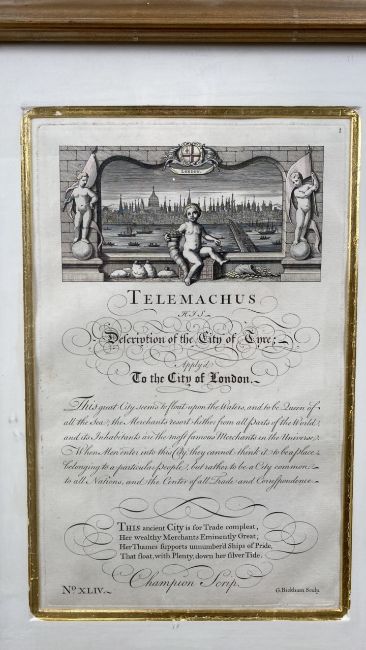 1
LONDON.
TELEMACHUS
HIS
Description of the City of Tyre;
Apply'd
To the City of London.
This great City seems to float upon the Waters, and to be Queen of
all the Sea; the Merchants resort hither from all Parts of the World,
and its Inhabitants are the most famous Merchants in the Universe.
When Men enter into this City they cannot think it to be a place
belonging to a particular People, but rather to be a City common
to all Nations, and the Center of all Trade and Correspondence.
THIS ancient City is for Trade compleat,
Her wealthy Merchants Eminently Great;
Her Thames supports unnumberd Ships of Pride,
That float, with Plenty, down her silver Tide.
Champion Scrip.
No. XLIV.
G. Bickham Sculp.